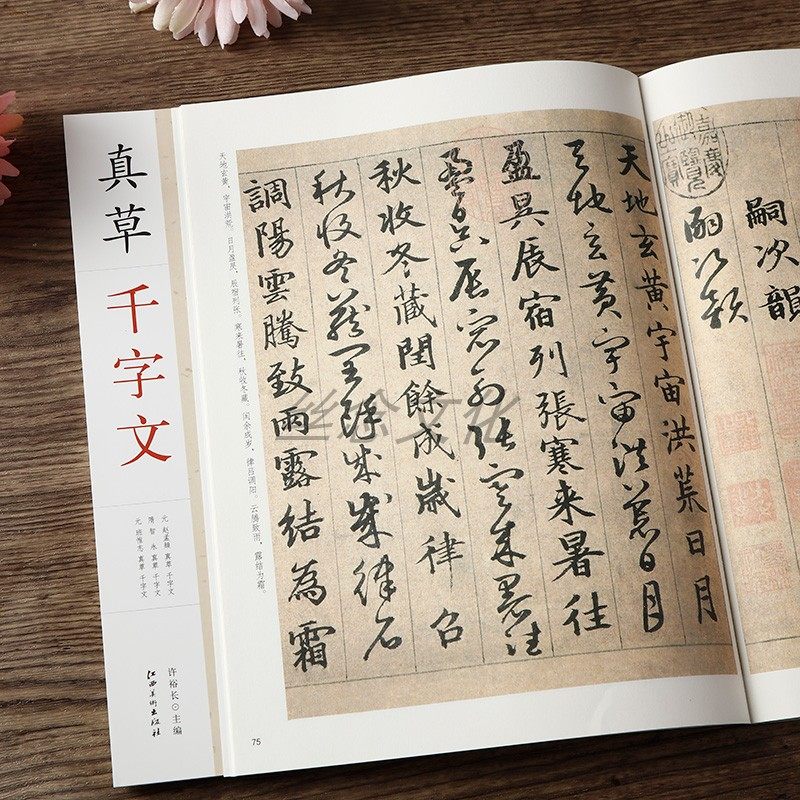 真草
千字文
元 赵孟頫 真草 千字文
隋 智永 真草 千字文
元 班惟志 真草 千字文
许裕长⊙主编
江西美术出版社
嗣次韻
嗣次韻
天地玄黄宇宙洪荒日月
天地玄黄宇宙洪荒日月
盈昃辰宿列張寒来暑往
盈昃辰宿列張寒来暑往
秋收冬藏閏餘成歲律吕
秋收冬藏閏餘成歲律吕
調陽雲騰致雨露結為霜
天地玄黄，宇宙洪荒。日月盈昃，辰宿列张。寒来暑往，秋收冬藏。闰余成岁，律吕调阳。云腾致雨，露结为霜。
75